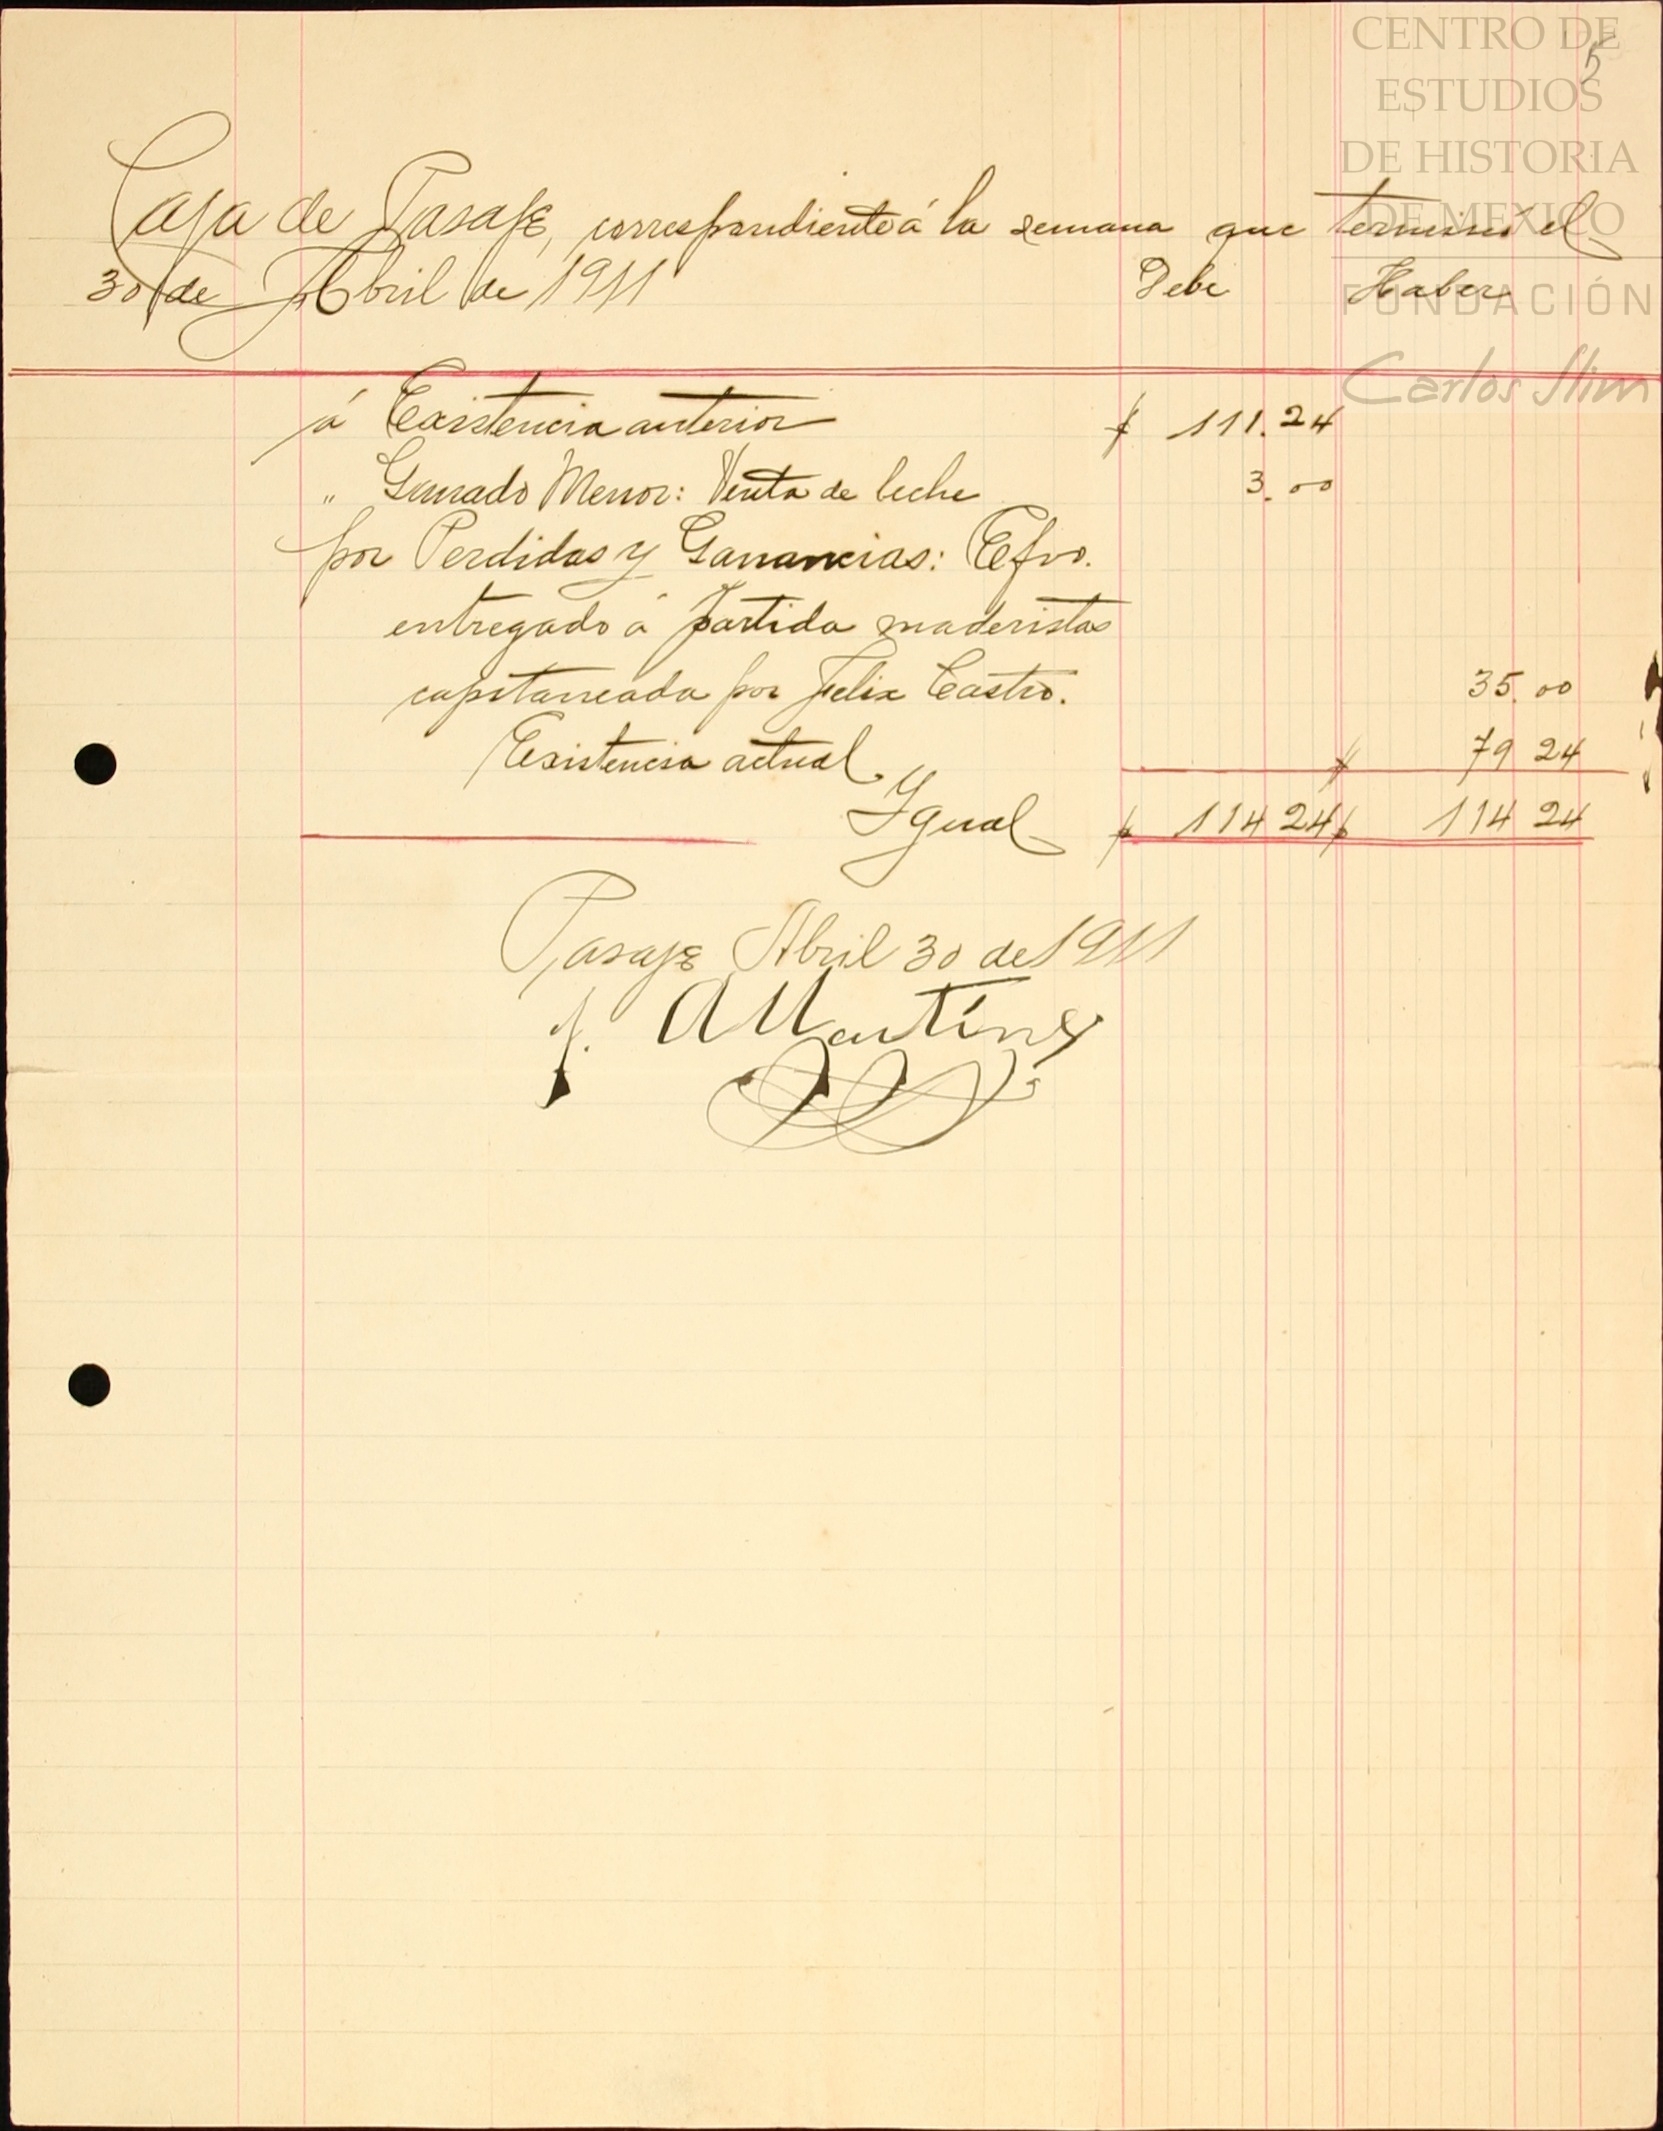 CENTRO DE
ESTUDIOS
DE HISTORIA
DE MEXICO
FUNDACIÓN
Carlos Slim
5
Caja de Pasaje, correspondiente á la semana que terminó el
30 de Abril de 1911 Debe Haber
á Existencia anterior $ 111.24
" Ganado Menor: Venta de leche 3.00
por Perdidas y Ganancias: Efvo.
entregado á partida maderistas
capitaneada por Felix Castro. 35.00
Existencia actual $ 79 24
Ygual $ 114 24 $ 114 24
Pasaje Abril 30 de 1911
A Martínez